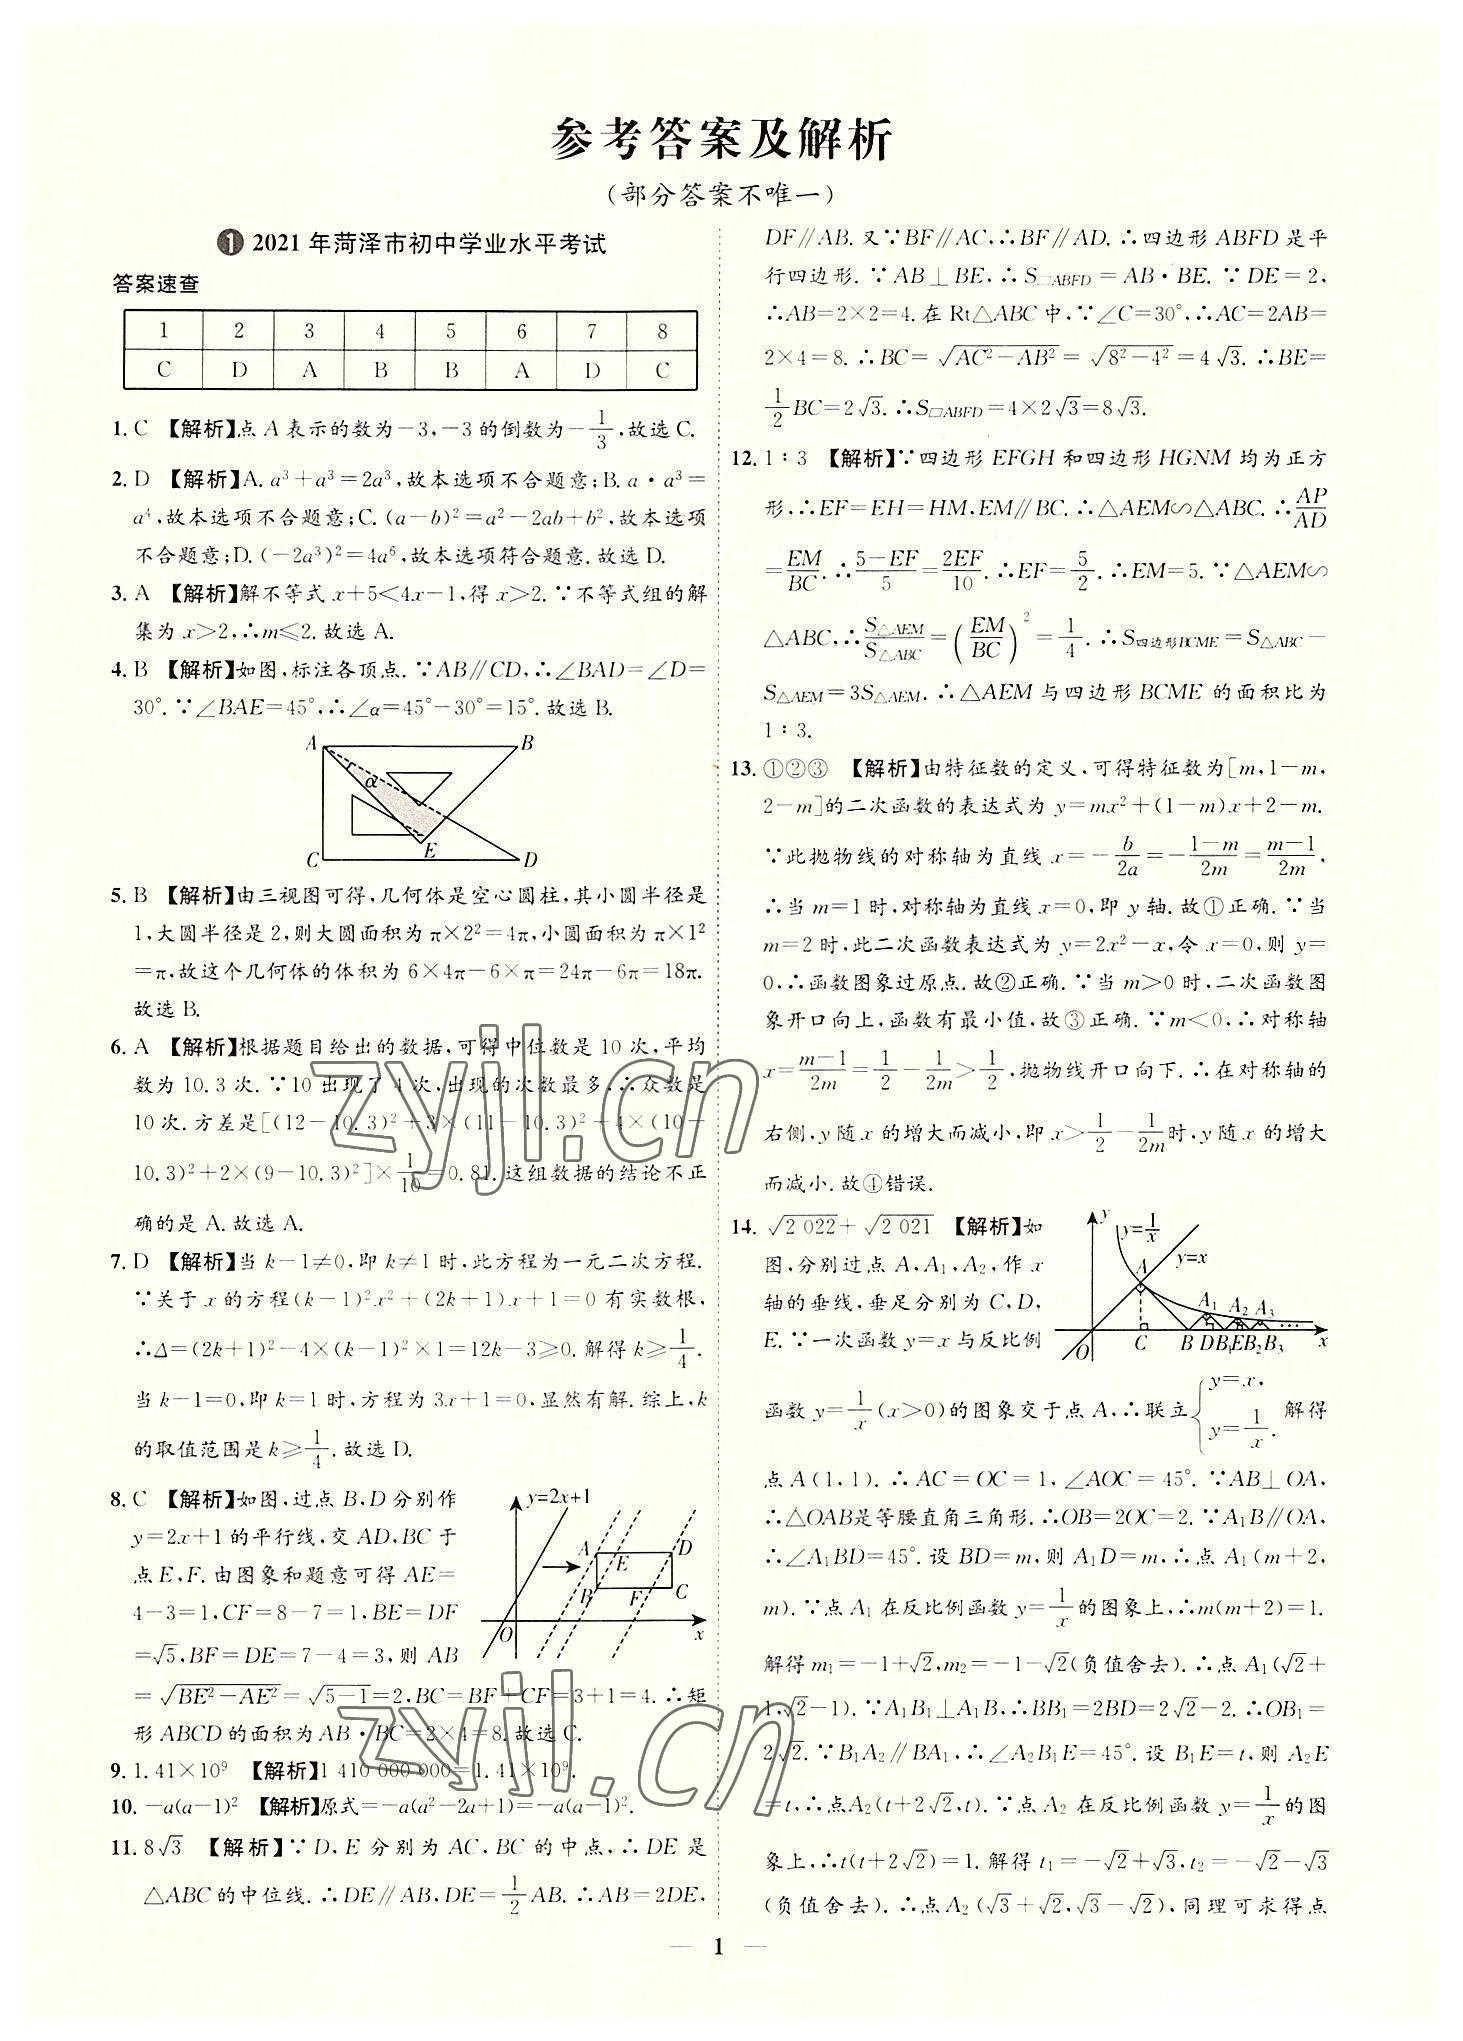 参考答案及解析
(部分答案不唯一)
1 2021年菏泽市初中学业水平考试
答案速查
1 2 3 4 5 6 7 8
C D A B B A D C
1. C 【解析】点A表示的数为-3,-3的倒数为-1/3,故选C.
2. D 【解析】A. a³+a³=2a³,故本选项不合题意;B. a·a³=
a⁴,故本选项不合题意;C. (a-b)²=a²-2ab+b²,故本选项
不合题意;D. (-2a³)²=4a⁶,故本选项符合题意.故选D.
3. A 【解析】解不等式x+5<4x-1,得x>2.∵不等式组的解
集为x>2,∴m≤2.故选A.
4. B 【解析】如图,标注各顶点.∵AB∥CD,∴∠BAD=∠D=
30°.∵∠BAE=45°,∴∠α=45°-30°=15°.故选B.
A B
α
E
C D
5. B 【解析】由三视图可得,几何体是空心圆柱,其小圆半径是
1,大圆半径是2,则大圆面积为π×2²=4π,小圆面积为π×1²
=π,故这个几何体的体积为6×4π-6×π=24π-6π=18π.
故选B.
6. A 【解析】根据题目给出的数据,可得中位数是10次,平均
数为10.3次.∵10出现了4次,出现的次数最多,∴众数是
10次.方差是[(12-10.3)²+3×(11-10.3)²+4×(10-
10.3)²+2×(9-10.3)²]×1/10=0.81.这组数据的结论不正
确的是A.故选A.
7. D 【解析】当k-1≠0,即k≠1时,此方程为一元二次方程.
∵关于x的方程(k-1)²x²+(2k+1)x+1=0有实数根,
∴Δ=(2k+1)²-4×(k-1)²×1=12k-3≥0.解得k≥1/4.
当k-1=0,即k=1时,方程为3x+1=0,显然有解.综上,k
的取值范围是k≥1/4.故选D.
8. C 【解析】如图,过点B,D分别作
y=2x+1的平行线,交AD,BC于
点E,F.由图象和题意可得AE=
4-3=1,CF=8-7=1,BE=DF
=√5,BF=DE=7-4=3,则AB
y=2x+1
A E D
B F C
O x
=√(BE²-AE²)=√(5-1)=2,BC=BF+CF=3+1=4.∴矩
形ABCD的面积为AB·BC=2×4=8.故选C.
9. 1.41×10⁹ 【解析】1 410 000 000=1.41×10⁹.
10. -a(a-1)² 【解析】原式=-a(a²-2a+1)=-a(a-1)².
11. 8√3 【解析】∵D,E分别为AC,BC的中点,∴DE是
△ABC的中位线.∴DE∥AB,DE=1/2AB.∴AB=2DE,
DF∥AB.又∵BF∥AC,∴BF∥AD.∴四边形ABFD是平
行四边形.∵AB⊥BE,∴S▱ABFD=AB·BE.∵DE=2,
∴AB=2×2=4.在Rt△ABC中,∵∠C=30°,∴AC=2AB=
2×4=8.∴BC=√(AC²-AB²)=√(8²-4²)=4√3.∴BE=
1/2BC=2√3.∴S▱ABFD=4×2√3=8√3.
12. 1∶3 【解析】∵四边形EFGH和四边形HGNM均为正方
形,∴EF=EH=HM,EM∥BC.∴△AEM∽△ABC.∴AP/AD
=EM/BC.∴(5-EF)/5=2EF/10.∴EF=5/2.∴EM=5.∵△AEM∽
△ABC,∴S△AEM/S△ABC=(EM/BC)²=1/4.∴S四边形BCME=S△ABC-
S△AEM=3S△AEM.∴△AEM与四边形BCME的面积比为
1∶3.
13. ①②③ 【解析】由特征数的定义,可得特征数为[m,1-m,
2-m]的二次函数的表达式为y=mx²+(1-m)x+2-m.
∵此抛物线的对称轴为直线x=-b/2a=-(1-m)/2m=(m-1)/2m,
∴当m=1时,对称轴为直线x=0,即y轴.故①正确.∵当
m=2时,此二次函数表达式为y=2x²-x,令x=0,则y=
0,∴函数图象过原点.故②正确.∵当m>0时,二次函数图
象开口向上,函数有最小值,故③正确.∵m<0,∴对称轴
x=(m-1)/2m=1/2-1/2m>1/2,抛物线开口向下.∴在对称轴的
右侧,y随x的增大而减小,即x>1/2-1/2m时,y随x的增大
而减小.故④错误.
14. √2 022+√2 021 【解析】如
图,分别过点A,A₁,A₂,作x
轴的垂线,垂足分别为C,D,
E.∵一次函数y=x与反比例
y y=1/x y=x
A A₁ A₂ A₃
O C B D B₁ E B₂ B₃ x
函数y=1/x(x>0)的图象交于点A,∴联立{y=x, y=1/x.解得
点A(1,1).∴AC=OC=1,∠AOC=45°.∵AB⊥OA,
∴△OAB是等腰直角三角形.∴OB=2OC=2.∵A₁B∥OA,
∴∠A₁BD=45°.设BD=m,则A₁D=m,∴点A₁(m+2,
m).∵点A₁在反比例函数y=1/x的图象上,∴m(m+2)=1.
解得m₁=-1+√2,m₂=-1-√2(负值舍去).∴点A₁(√2+
1,√2-1).∵A₁B₁⊥A₁B,∴BB₁=2BD=2√2-2.∴OB₁=
2√2.∵B₁A₂∥BA₁,∴∠A₂B₁E=45°.设B₁E=t,则A₂E
=t,∴点A₂(t+2√2,t).∵点A₂在反比例函数y=1/x的图
象上,∴t(t+2√2)=1.解得t₁=-√2+√3,t₂=-√2-√3
(负值舍去).∴点A₂(√3+√2,√3-√2),同理可求得点
— 1 —
zyjl.cn
zyjl.cn